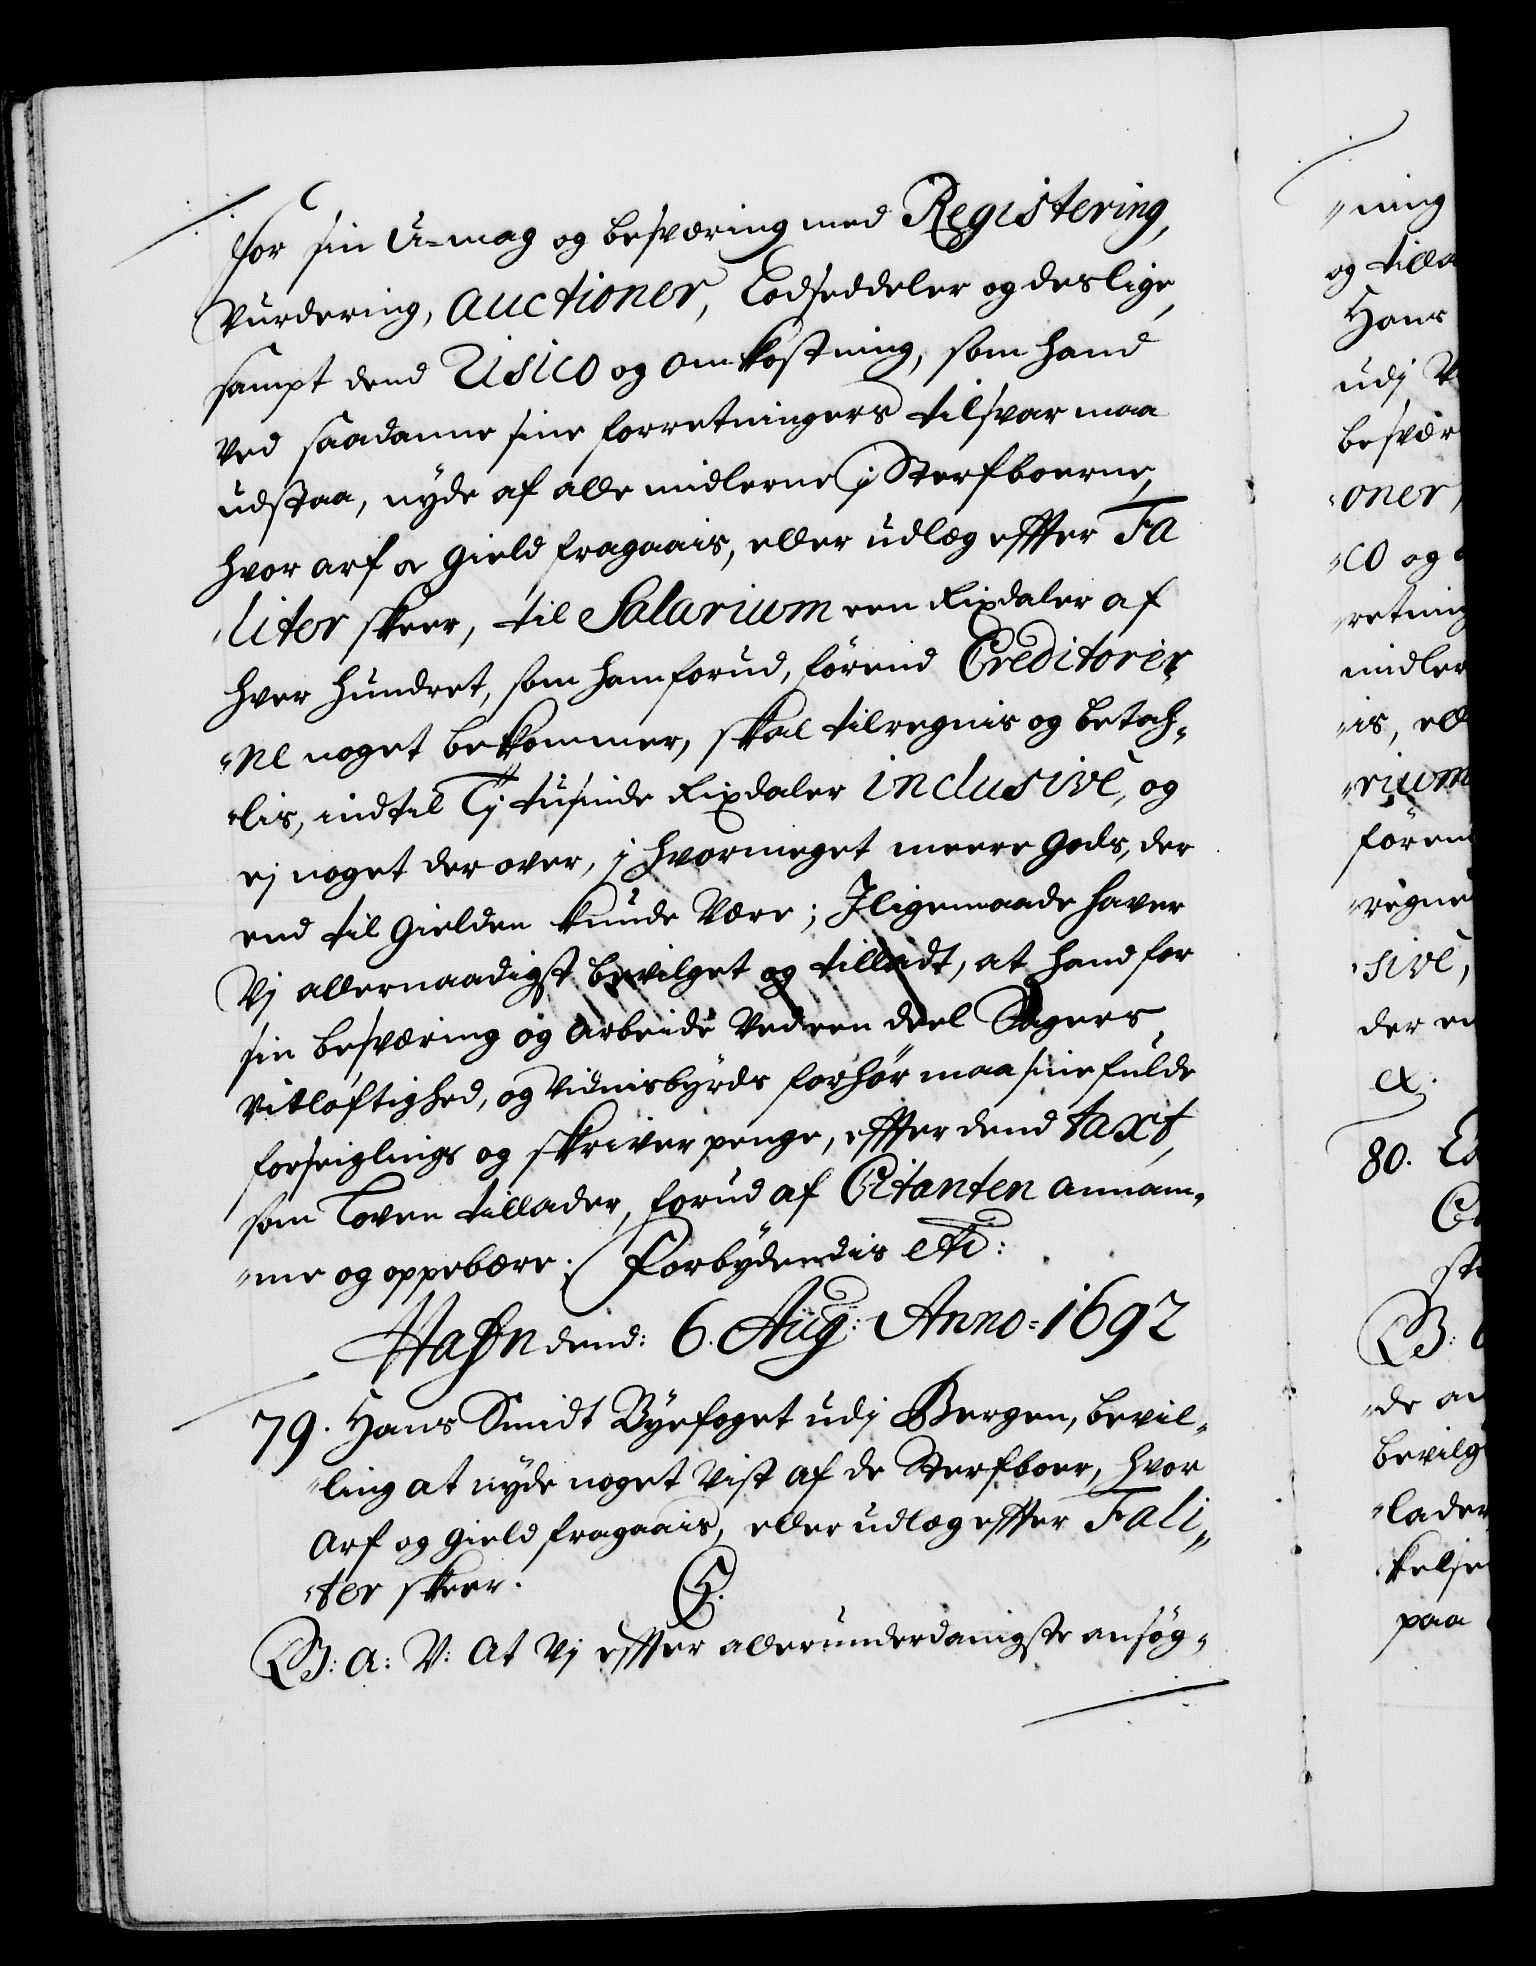 for sin U-mag og besværing med Registering,
Vurdering, Auctioner, Lodseddeler og deslige,
sampt dend Risico og omkostning, som hand
ved saadanne sine forretningers tilsvar maa
udstaa, nyde af alle midlerne j Sterfboerne,
hvor arf og Gield fragaais, eller udleg effter Fa
"liter skeer, til Salarium een Rixdaler af
hver hundret, som ham forud, förend Creditorer,,
"ne noget bekommer, skal tilregnis og betah,,
"lis, indtil Tj tusinde Rixdaler inclusive, og
ej noget der over, j hvormeget meere Gods, der
end til Gielden kunde Være; Jligemaade haver
Vj allernaadigst bevilget og tilladt, at hand for
sin besværing og Arbeide Ved een deel Sagers,
Vitløftighed, og Vidnisbyrds forhør maa sine fulde
forseiglings og skriver penge, effter dend taxt,
som Loven tillader, forud af Citanten annam,,
"me og oppebære. Forbydendis etc:
Hafn dend: 6. Aug: Anno=1692
79. Hans Smidt Byefoget udj Bergen, bevil,,
"ling at nyde noget Vist af de Sterfboer, hvor
Arf og Gield fragaais, eller udleg effter Fali,,
"ter skeer.
G.
G: A: V: At Vj effter allerunderdanigste ansøg,,
"ning
og tilla
Hans
udj
besvær
"oner,
"co og
"retning
midler
"is, ell
"rium
fören
"regne
"sive,
der en
80.
"de an
bevilg
"lader
"kelse
paa